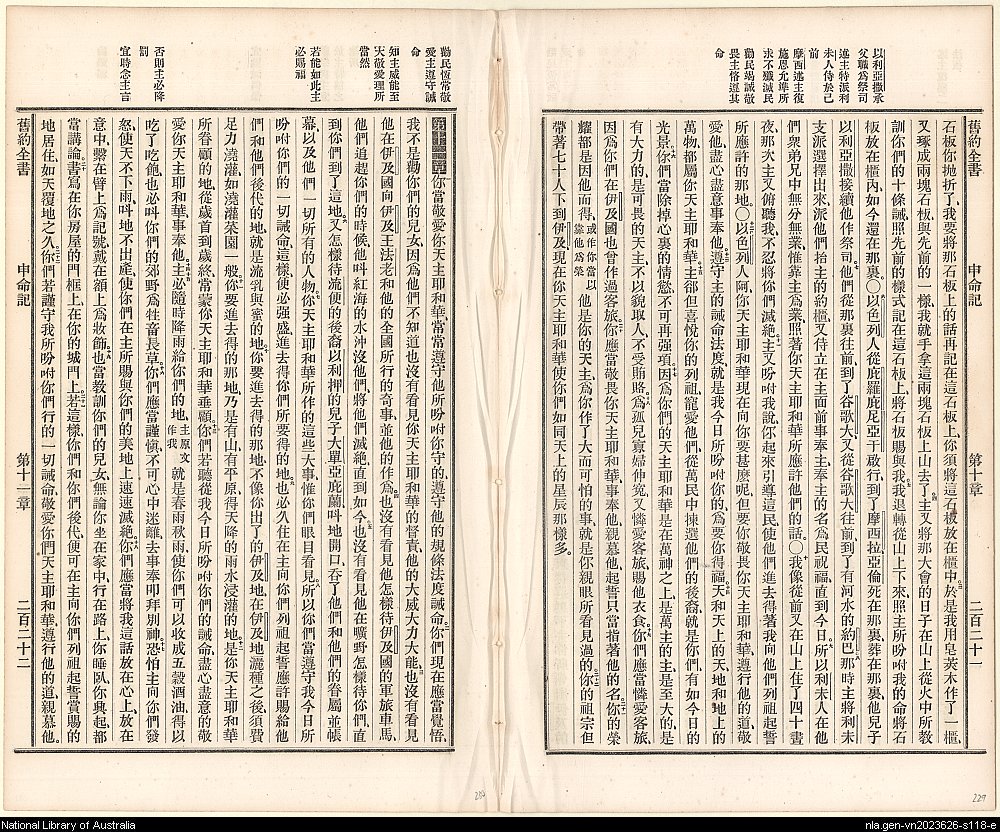 以利亞撒承
父職為祭司
述主特派利
未人侍於己
前
摩西述主復
施恩允準所
求不殲滅民
勸民竭誠敬
畏主恪遵其
命
舊約全書 申命記 第十章 二百二十一
石板你拋折了、我要將那石板上的話再記在這石板上、你須將這石板放在櫃中、於是我用皂莢木作了一櫃、
又琢成兩塊石板與先前的一樣、我就手拿這兩塊石板上山去了、主又將那大會的日子在山上從火中所教
訓你們的十條誡、照先前的樣式記在這石板上、將石板賜與我、我退轉從山上下來、照主所吩咐我的命將石
板放在櫃內、如今還在那裏、〇以色列人從庇羅庇尼亞干啟行、到了摩西拉、亞倫死在那裏、葬在那裏、他兒子
以利亞撒接續他作祭司、他們從那裏往前到了谷歌大、又從谷歌大往前到了有河水的約巴、那時主將利未
支派選擇出來、派他們抬主的約櫃、又侍立在主面前事奉主、奉主的名為民祝福、直到今日、所以利未人在他
們衆弟兄中無分無業、惟靠主為業、照著你天主耶和華所應許他們的話、〇我像從前又在山上住了四十晝
夜、那次主又俯聽我、不忍將你們滅絕、主又吩咐我說、你起來引導這民、使他們進去得著我向他們列祖起誓
所應許的那地、〇以色列人阿、你天主耶和華現在向你要甚麼呢、但要你敬畏你天主耶和華、遵行他的道、敬
愛他、盡心盡意事奉他、遵守主的誡命法度、就是我今日所吩咐你的、為要你得福、天和天上的天、地和地上的
萬物、都屬你天主耶和華、主卻但喜悅你的列祖、寵愛他們、從萬民中揀選他們的後裔、就是你們、有如今日的
光景、你們當除掉心裏的情慾、不可再強項、因為你們的天主耶和華、是在萬神之上、是萬主的主、是至大的、是
有大力的、是可畏的天主、不以貌取人、不受賄賂、為孤兒寡婦伸寃、又憐愛客旅、賜他衣食、你們應當憐愛客旅、
因為你們在伊及國也曾作過客旅、你應當敬畏你天主耶和華、事奉他、親慕他、起誓只當指著他的名、你的榮
耀都是因他而得、或作你當以靠他為榮他是你的天主、為你作了大而可怕的事、就是你親眼所看見過的、你的祖宗但
帶著七十人下到伊及、現在你天主耶和華使你們如同天上的星辰那樣多、
勸民恆常敬
愛主遵守誡
命
知主威能至
大敬愛理所
當然
若能如此主
必賜福
否則主必降
罰
宜時念主言
第十一章你當敬愛你天主耶和華、常常遵守他所吩咐你守的、遵守他的規條法度誡命、你們現在應當覺悟、
我不是勸你們的兒女、因為他們不知道、也沒有看見你天主耶和華的督責、他的大威大力大能、也沒有看見
他在伊及國向伊及王法老和他的全國所行的奇事、並他的作為、也沒有看見他怎樣待伊及國的軍旅車馬、
他們追趕你們的時候、他叫紅海的水沖沒他們、將他們滅絕、直到如今、也沒有看見他在曠野怎樣待你們、直
到你們到了這地、又怎樣待流便的後裔、以利押的兒子大單亞庇蘭、叫地開口、吞了他們、和他們的眷屬、並帳
幕、以及他們一切所有的人物、你天主耶和華所作的這些大事、惟你們眼目看見、所以你們當遵守我今日所
吩咐你們的一切誡命、這樣便必強盛、進去得你們所要得的地、也必久住在主向你們列祖起誓應許賜給他
們和他們後代的地、就是流乳與蜜的地、你要進去得的那地、不像你出了的伊及地、在伊及地灑種之後、須費
足力澆灌、如澆灌菜園一般、你要進去得的那地、乃是有山有平原、得天降的雨水浸灌的地、是你天主耶和華
所眷顧的地、從歲首到歲終、常蒙你天主耶和華垂顧、你們若聽從我今日所吩咐你們的誡命、盡心盡意的敬
愛你天主耶和華、事奉他、主必隨時降雨給你們的地、主原文作我就是春雨秋雨、使你們可以收成五穀酒油、得以
吃了吃飽、也必叫你們的郊野為牲畜長草、你們應當謹慎、不可心中迷離、去事奉叩拜別神、恐怕主向你們發
怒、使天不下雨、叫地不出產、使你們在主所賜與你們的美地上速速滅絕、你們應當將我這話放在心上、放在
意中、繫在臂上為記號、戴在額上為妝飾、也當教訓你們的兒女、無論你坐在家中、行在路上、你睡臥、你興起、都
當講論、書寫在你房屋的門框上、在你的城門上、若這樣、你們和你們後代、便可在主向你們列祖起誓賞賜的
地居住、如天覆地之久、你們若謹守我所吩咐你們行的一切誡命、敬愛你們天主耶和華、遵行他的道、親慕他、
舊約全書 申命記 第十一章 二百二十二
227
National Library of Australia
nla.gen-vn2023626-s118-e